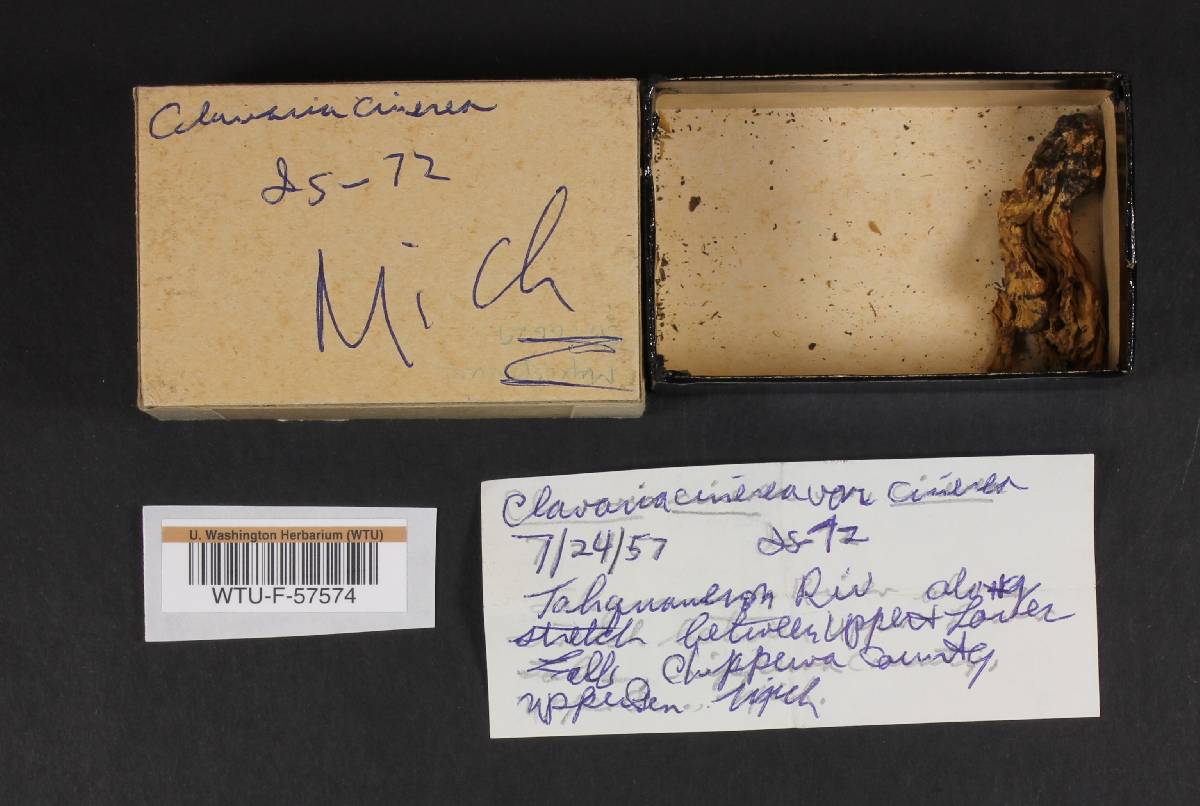 Clavaria cinerea
Ds-72
Mich
U. Washington Herbarium (WTU)
WTU-F-57574
Clavaria cinerea var cinerea
7/24/57 Ds-72
Tahquamenon River along
stretch between Upper & Lower
Falls Chippewa County,
Upper Pen. Mich.